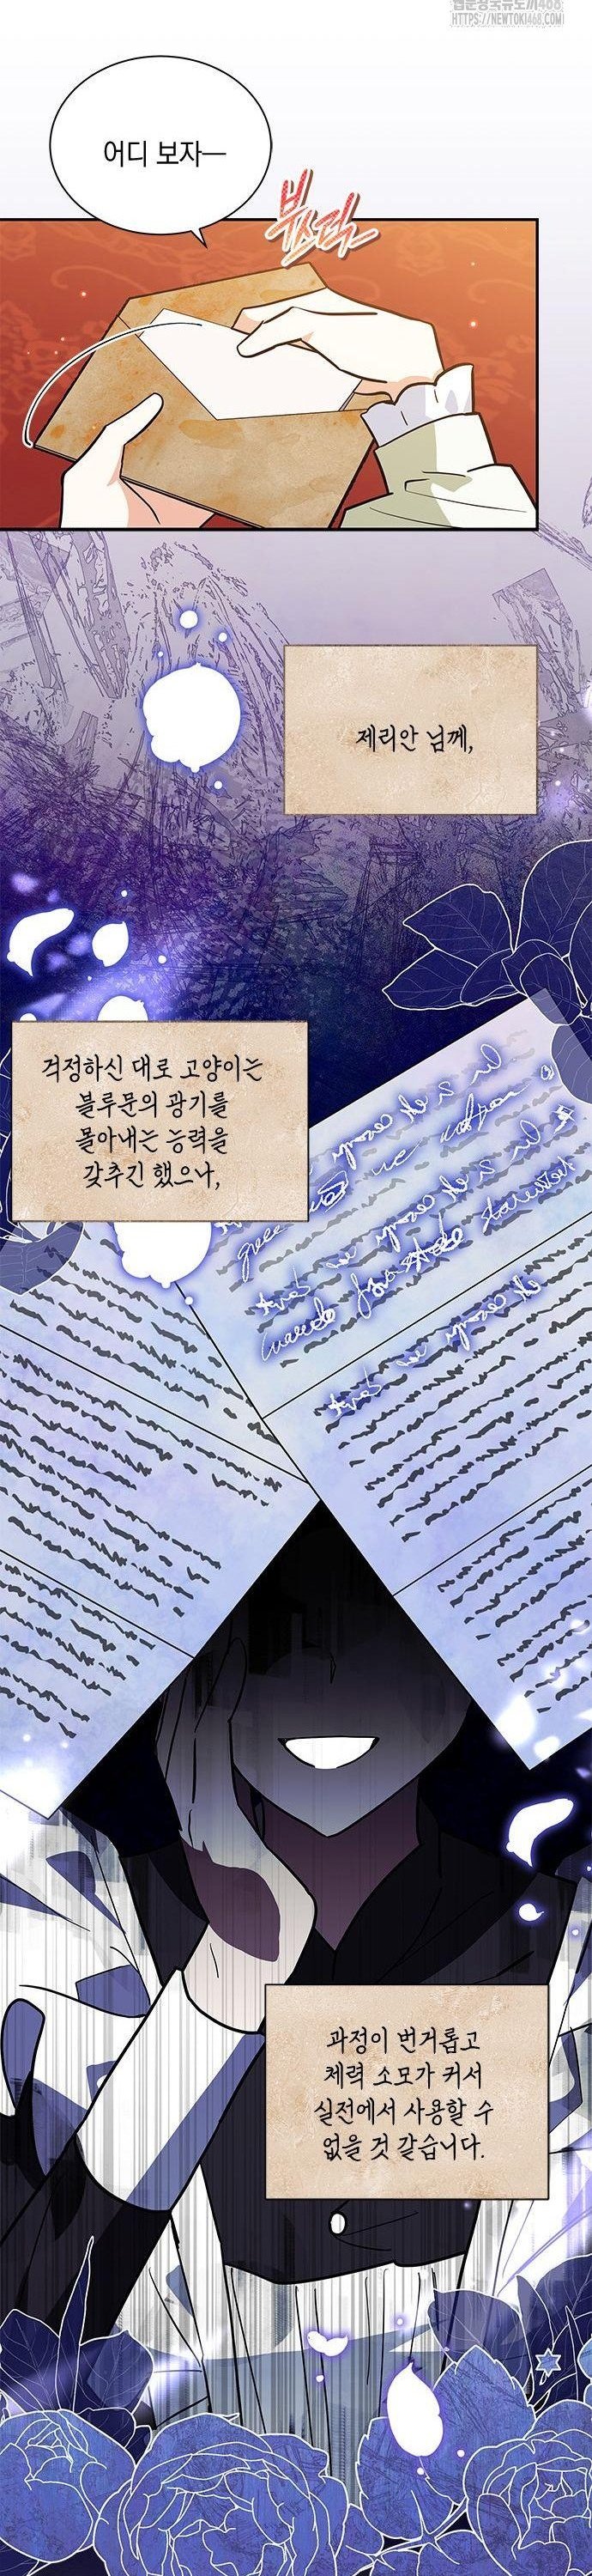 HTTPS://NEWTOKI468.COM
어디 보자—
부스럭
제리안 님께,
걱정하신 대로 고양이는
블루문의 광기를
몰아내는 능력을
갖추긴 했으나,
과정이 번거롭고
체력 소모가 커서
실전에서 사용할 수
없을 것 같습니다.